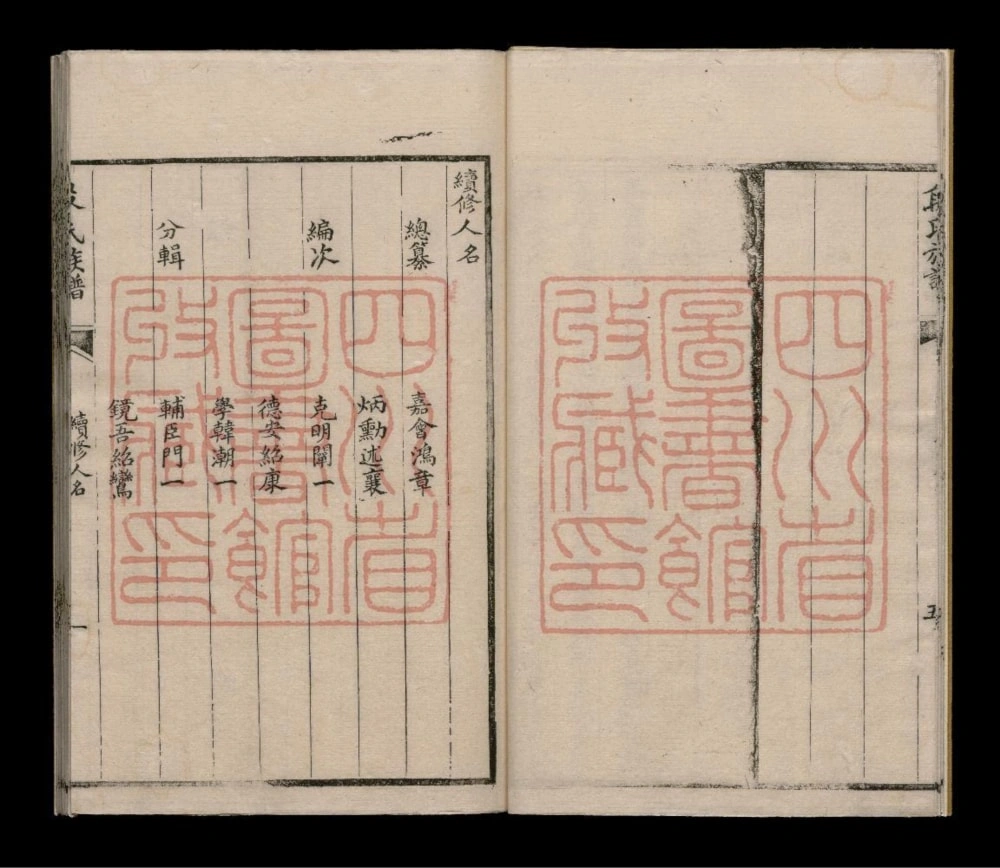 段氏族譜
五
四川省
圖書館
收藏印
續修人名
總纂
嘉會鴻章
炳勳述襄
編次
克明闡一
德安紹康
學韓朝一
分輯
輔臣門一
鏡吾紹鸞
段氏族譜
續修人名
一
四川省
圖書館
收藏印